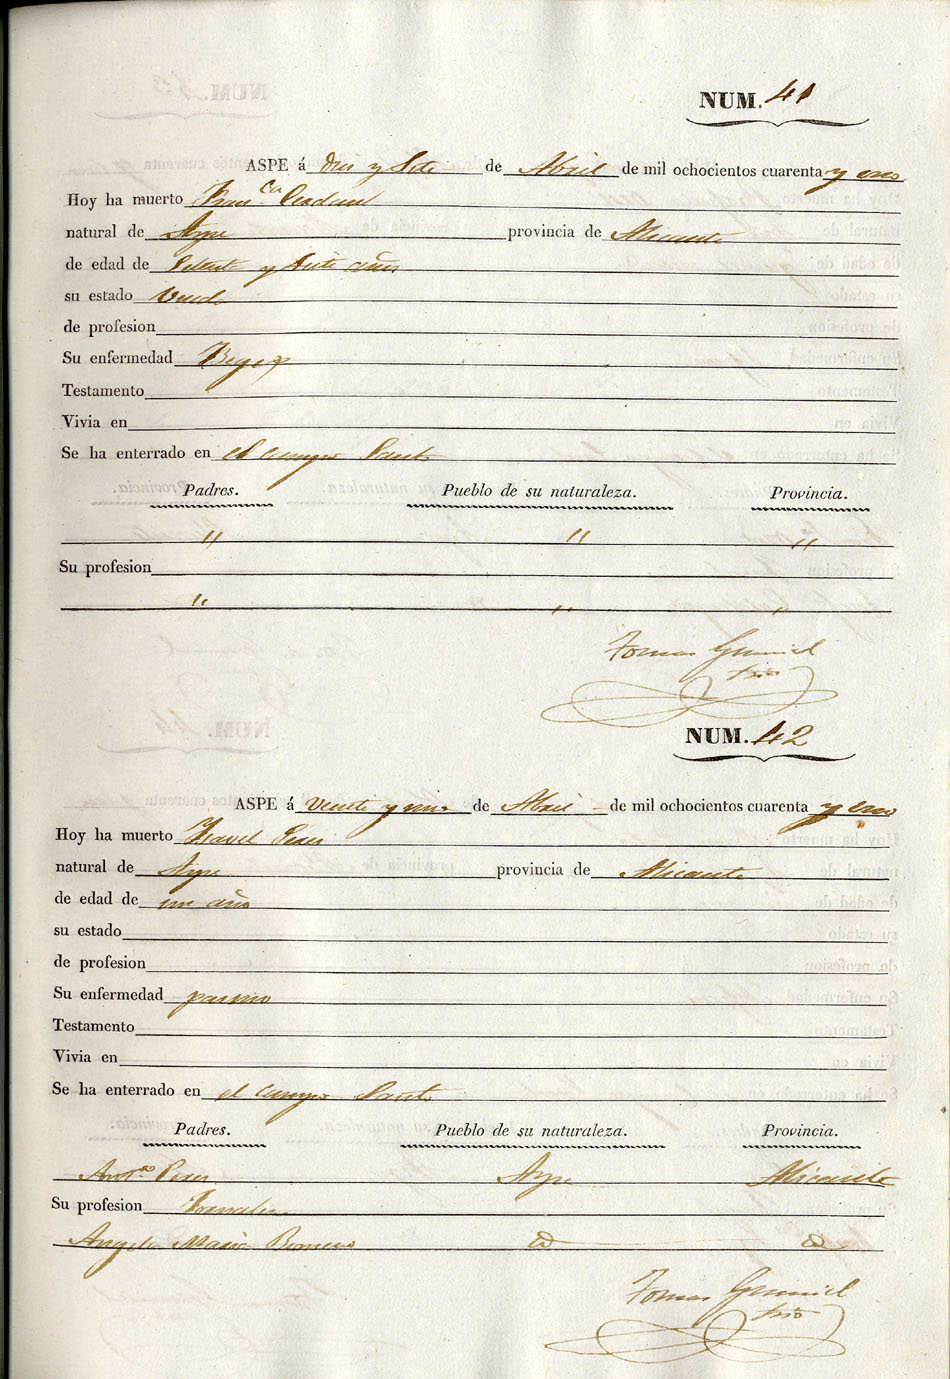 NUM. 41
ASPE á diez y siete de Abril de mil ochocientos cuarenta y uno
Hoy ha muerto Fran.ca
natural de Aspe provincia de Alicante
de edad de Setenta y siete años
su estado Viuda
de profesion
Su enfermedad Begez
Testamento
Vivia en
Se ha enterrado en el campo Santo
Padres. Pueblo de su naturaleza. Provincia.
" " "
Su profesion
" " "
Tomas
NUM. 42
ASPE á veinte y uno de Abril de mil ochocientos cuarenta y uno
Hoy ha muerto Ysavel Perez
natural de Aspe provincia de Alicante
de edad de un año
su estado
de profesion
Su enfermedad pasmo
Testamento
Vivia en
Se ha enterrado en el campo Santo
Padres. Pueblo de su naturaleza. Provincia.
Ant.º Perez Aspe Alicante
Su profesion Jornalero
Angela Maria
Tomas